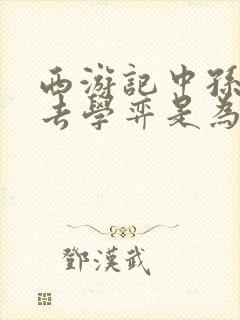 西游記中孫
去學弈是為
鄧漢武